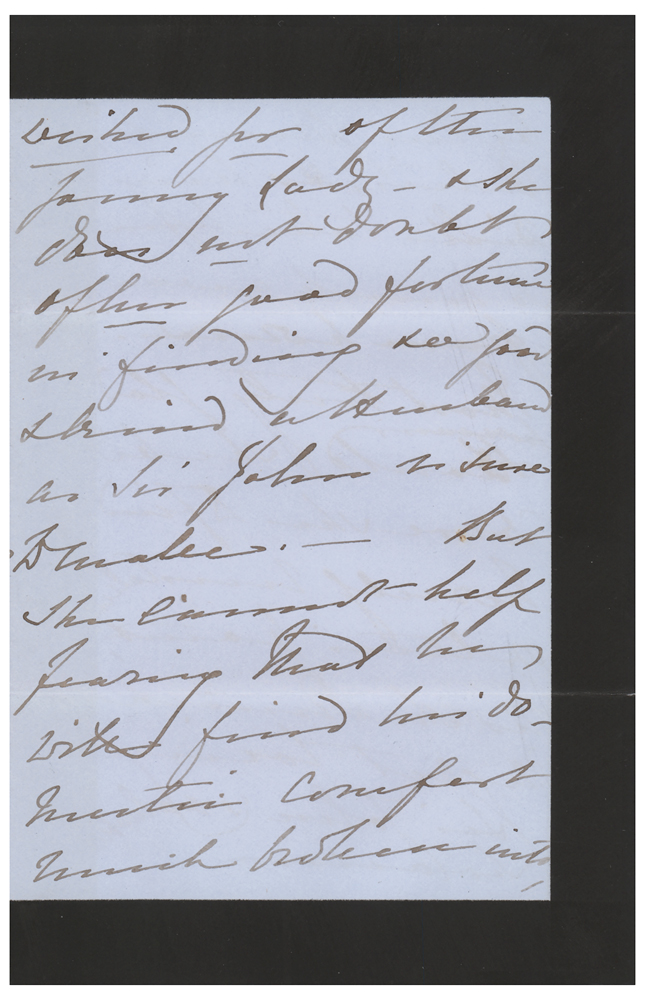 wished for of the
young Lady - & she
does not doubt
of her good fortune
in finding so good
& kind a Husband
as Sir John is sure
to make. - But
she cannot help
fearing that he
will find his do-
mestic comfort
much broken into,